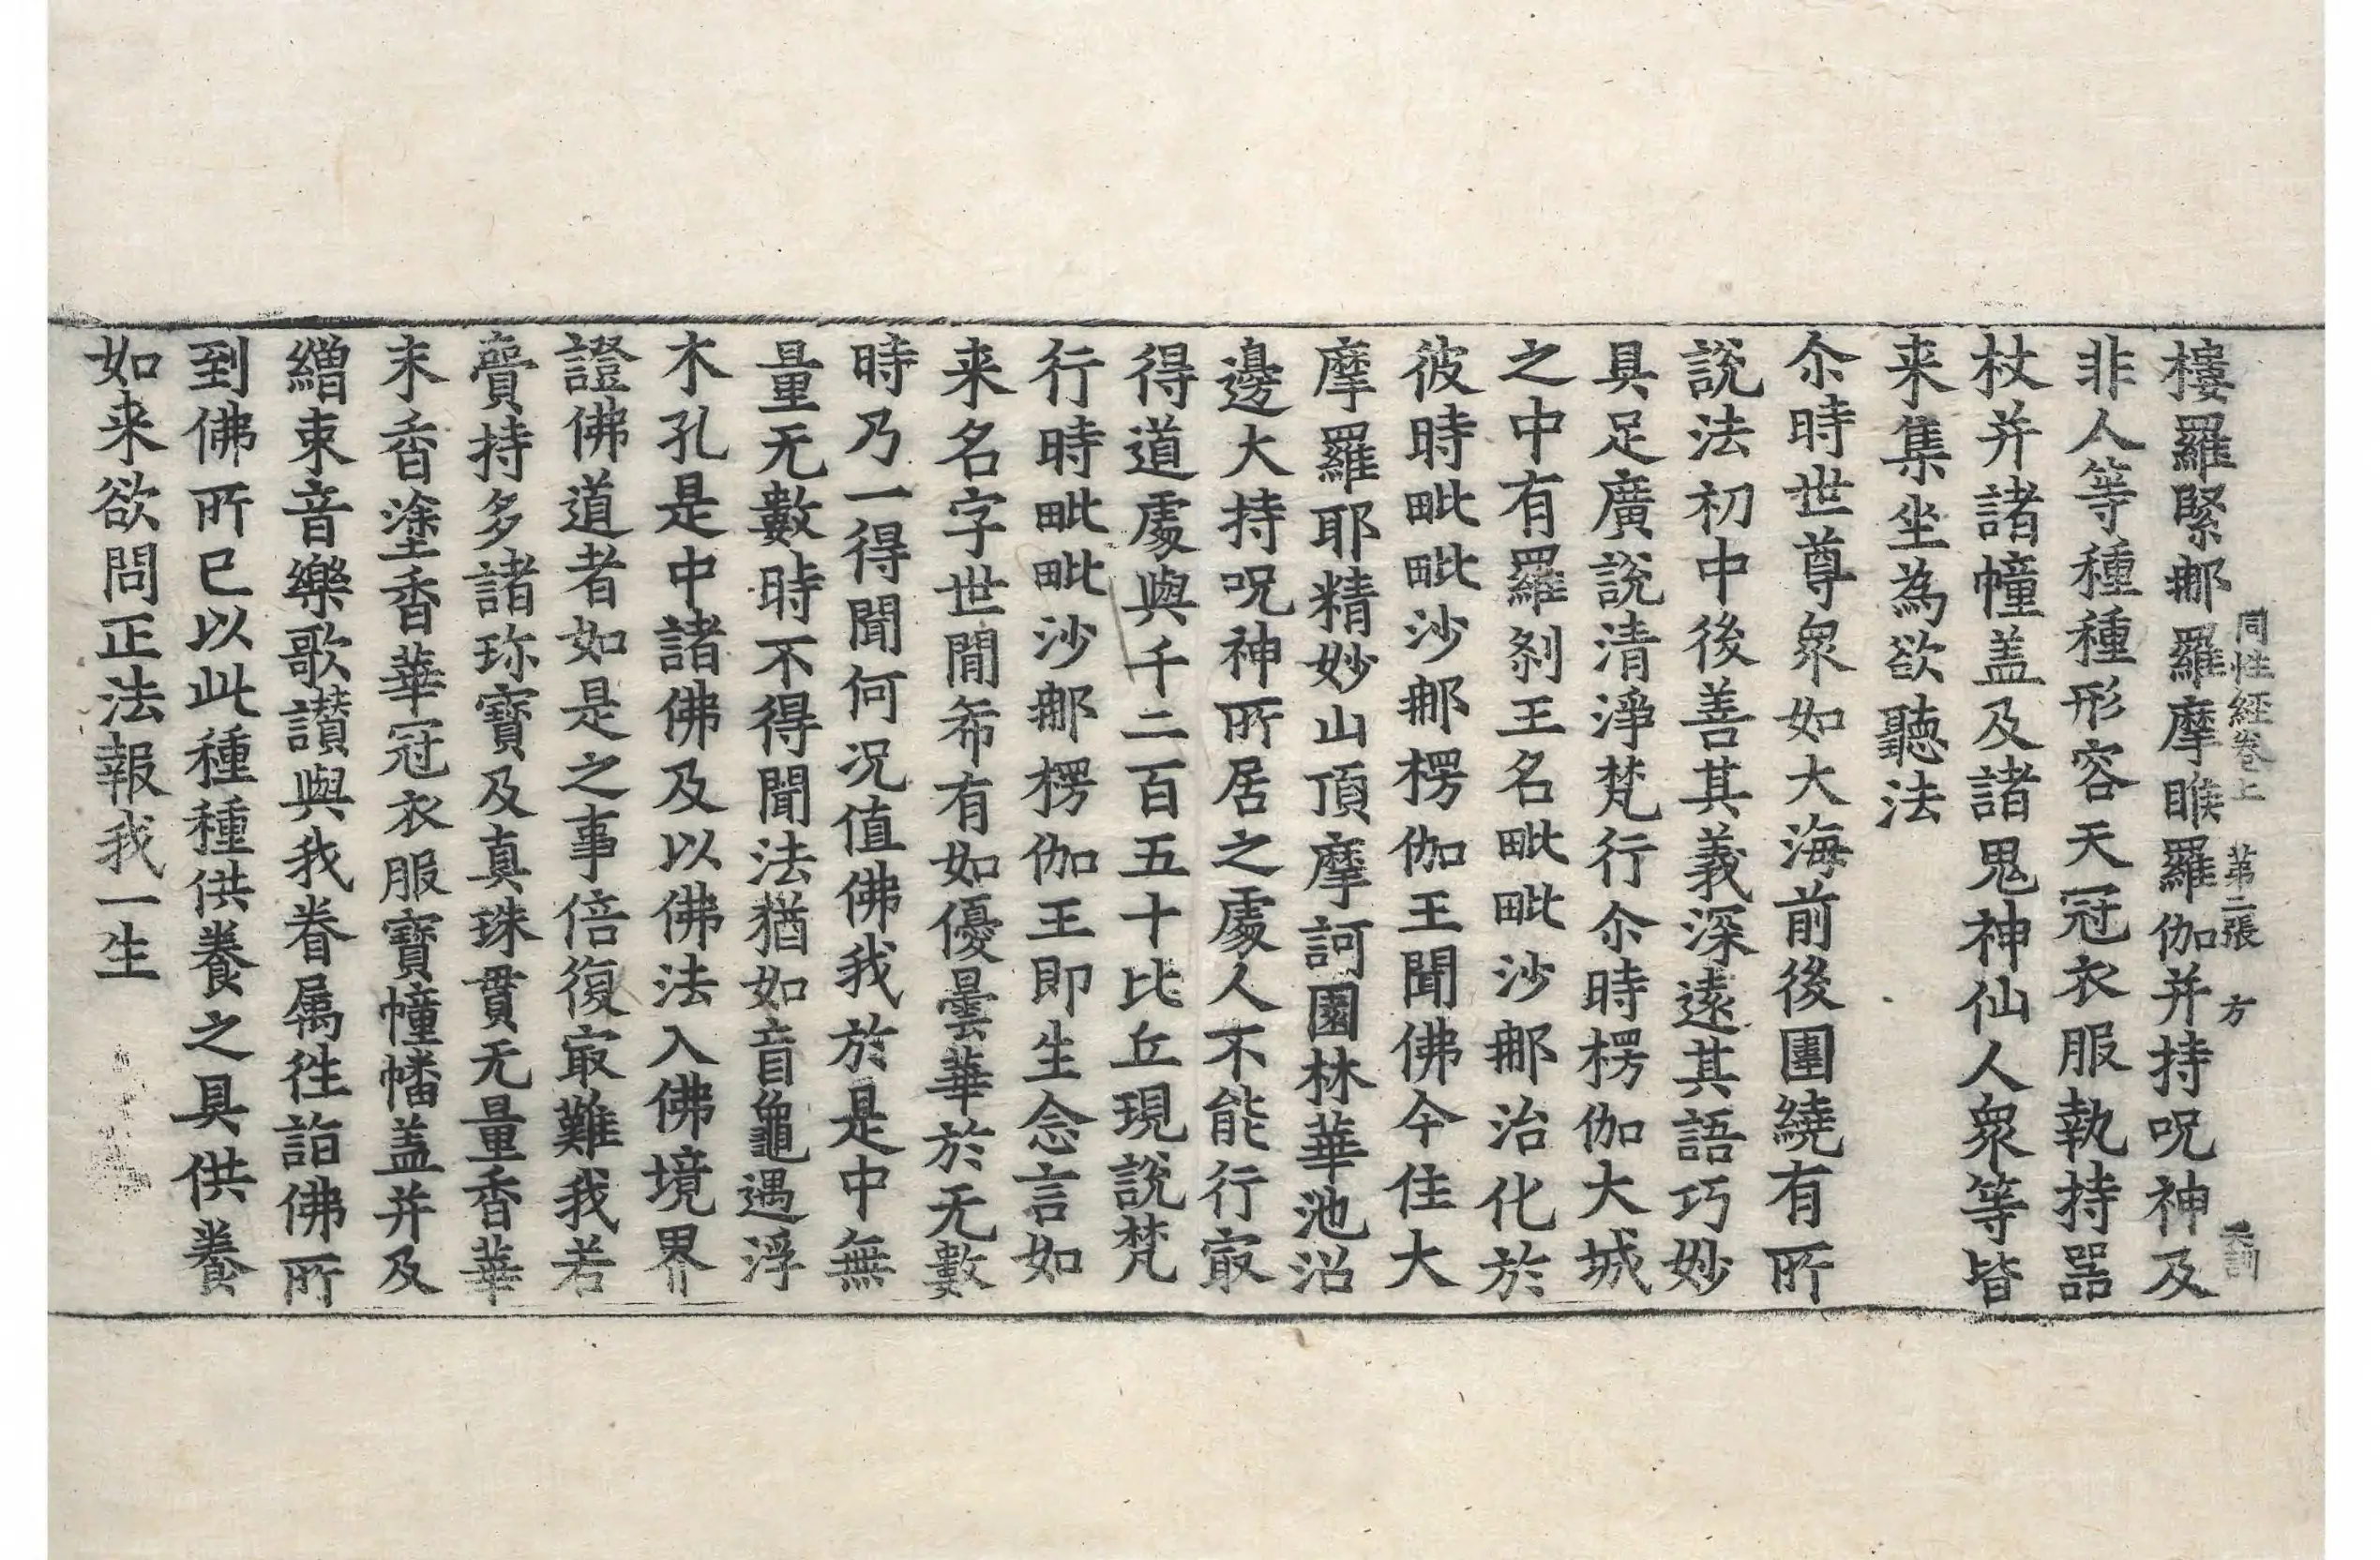 同性經卷上 第二張 方
樓羅緊那羅摩睺羅伽并持呪神及
非人等種種形容天冠衣服執持器
杖并諸幢盖及諸鬼神仙人衆等皆
来集坐為欲聽法
尒時世尊衆如大海前後圍繞有所
說法初中後善其義深遠其語巧妙
具足廣說清淨梵行尒時楞伽大城
之中有羅刹王名毗毗沙那治化於
彼時毗毗沙那楞伽王聞佛今住大
摩羅耶精妙山頂摩訶園林華池沼
邊大持呪神所居之處人不能行㝡
得道處與千二百五十比丘現說梵
行時毗毗沙那楞伽王即生念言如
来名字世間希有如優曇華於无數
時乃一得聞何况值佛我於是中無
量无數時不得聞法猶如盲龜遇浮
木孔是中諸佛及以佛法入佛境界
證佛道者如是之事倍復㝡難我若
賷持多諸珎寶及真珠貫无量香華
末香塗香華冠衣服寶幢幡盖并及
繒束音樂歌讃與我眷属徃詣佛所
到佛所已以此種種供養之具供養
如来欲問正法報我一生